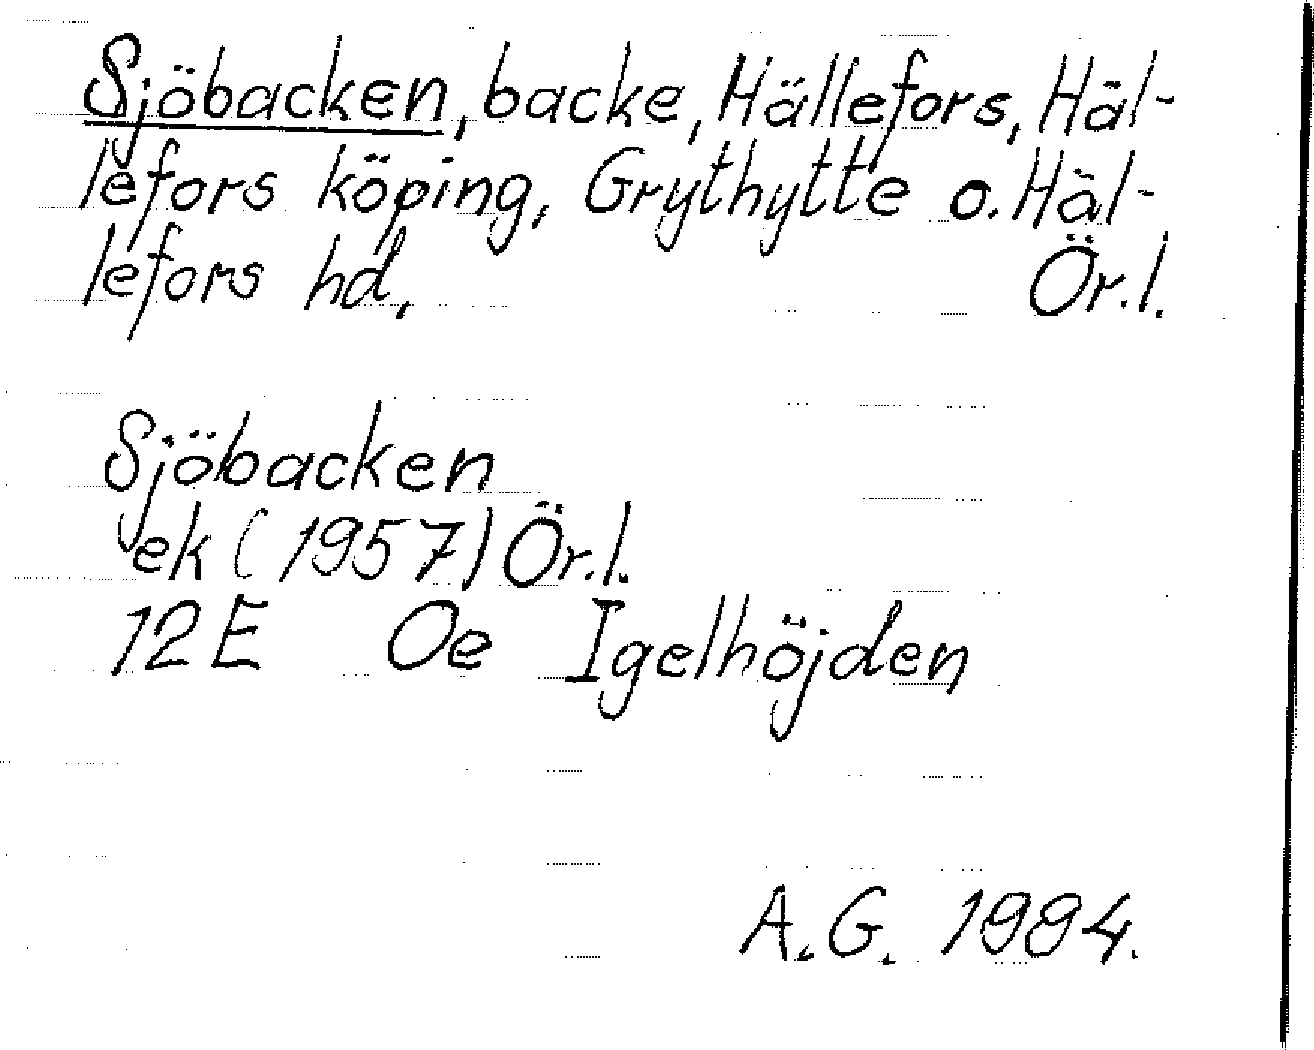 Sjöbacken, backe, Hällefors, Häl-
lefors köping, Grythytte o. Häl-
lefors hd, Ör.l.
Sjöbacken
ek (1957) Ör.l.
12E Oe Igelhöjden
A.G. 1994.